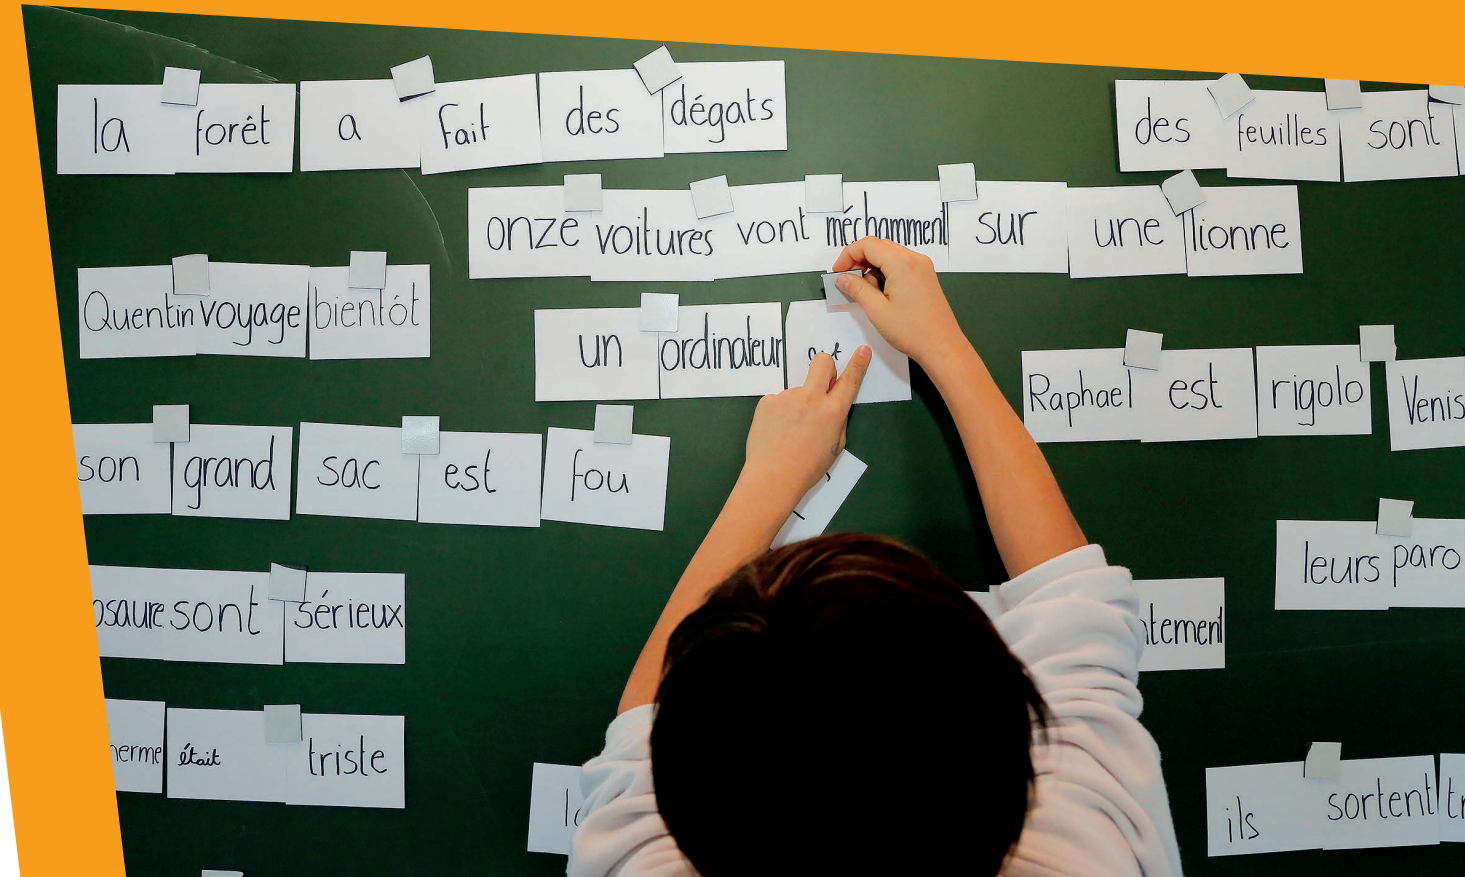 la forêt a fait des dégats
des feuilles sont
onze voitures vont méchamment sur une lionne
Quentin voyage bientôt
un ordinateur
Raphael est rigolo Venis
son grand sac est fou
leurs paro
osaure sont sérieux
ntement
herme était triste
ils sortent tr